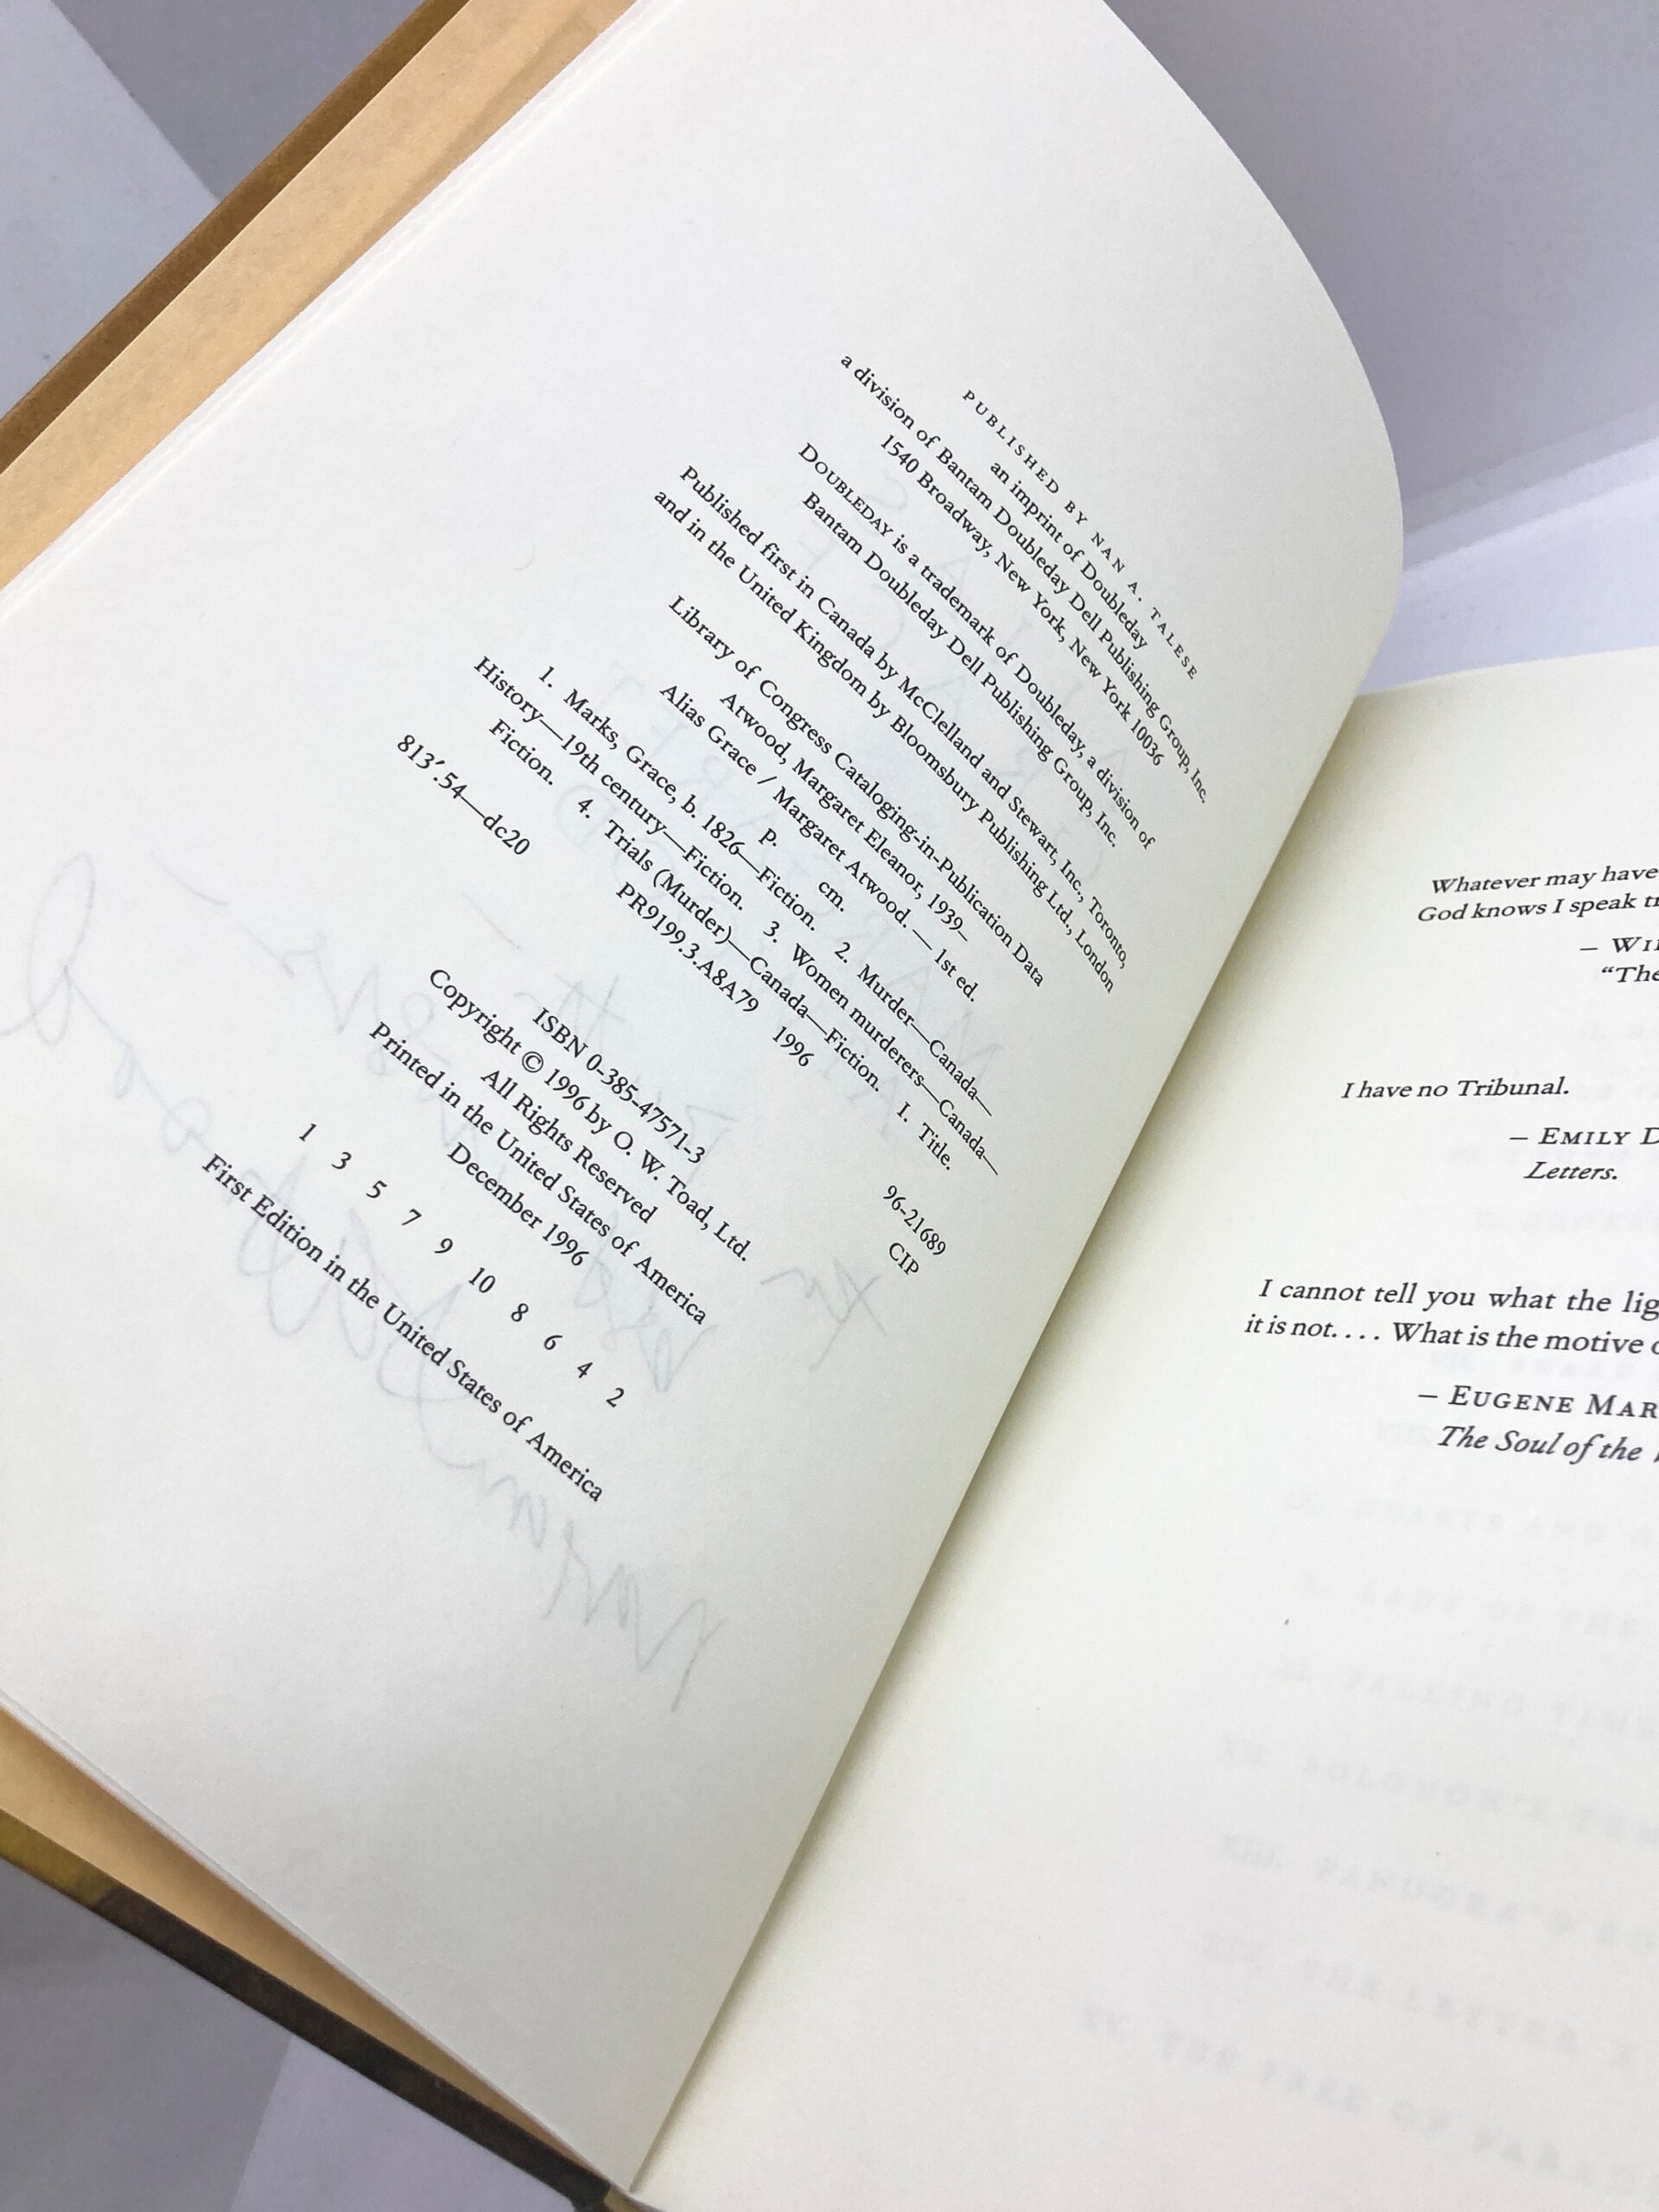 PUBLISHED BY NAN A. TALESE
an imprint of Doubleday
a division of Bantam Doubleday Dell Publishing Group, Inc.
1540 Broadway, New York, New York 10036
DOUBLEDAY is a trademark of Doubleday, a division of
Bantam Doubleday Dell Publishing Group, Inc.
Published first in Canada by McClelland and Stewart, Inc., Toronto,
and in the United Kingdom by Bloomsbury Publishing Ltd., London
Library of Congress Cataloging-in-Publication Data
Atwood, Margaret Eleanor, 1939–
Alias Grace / Margaret Atwood. — 1st ed.
p. cm.
1. Marks, Grace, b. 1826—Fiction. 2. Murder—Canada—
History—19th century—Fiction. 3. Women murderers—Canada—
Fiction. 4. Trials (Murder)—Canada—Fiction. I. Title.
PR9199.3.A8A79 1996
813′.54—dc20 96-21689
CIP
ISBN 0-385-47571-3
Copyright © 1996 by O. W. Toad, Ltd.
All Rights Reserved
Printed in the United States of America
December 1996
1 3 5 7 9 10 8 6 4 2
First Edition in the United States of America
Whatever may have
God knows I speak
–
"The
I have no Tribunal.
– EMILY
Letters.
I cannot tell you what the
it is not. . . . What is the motive
– EUGENE
The Soul of the